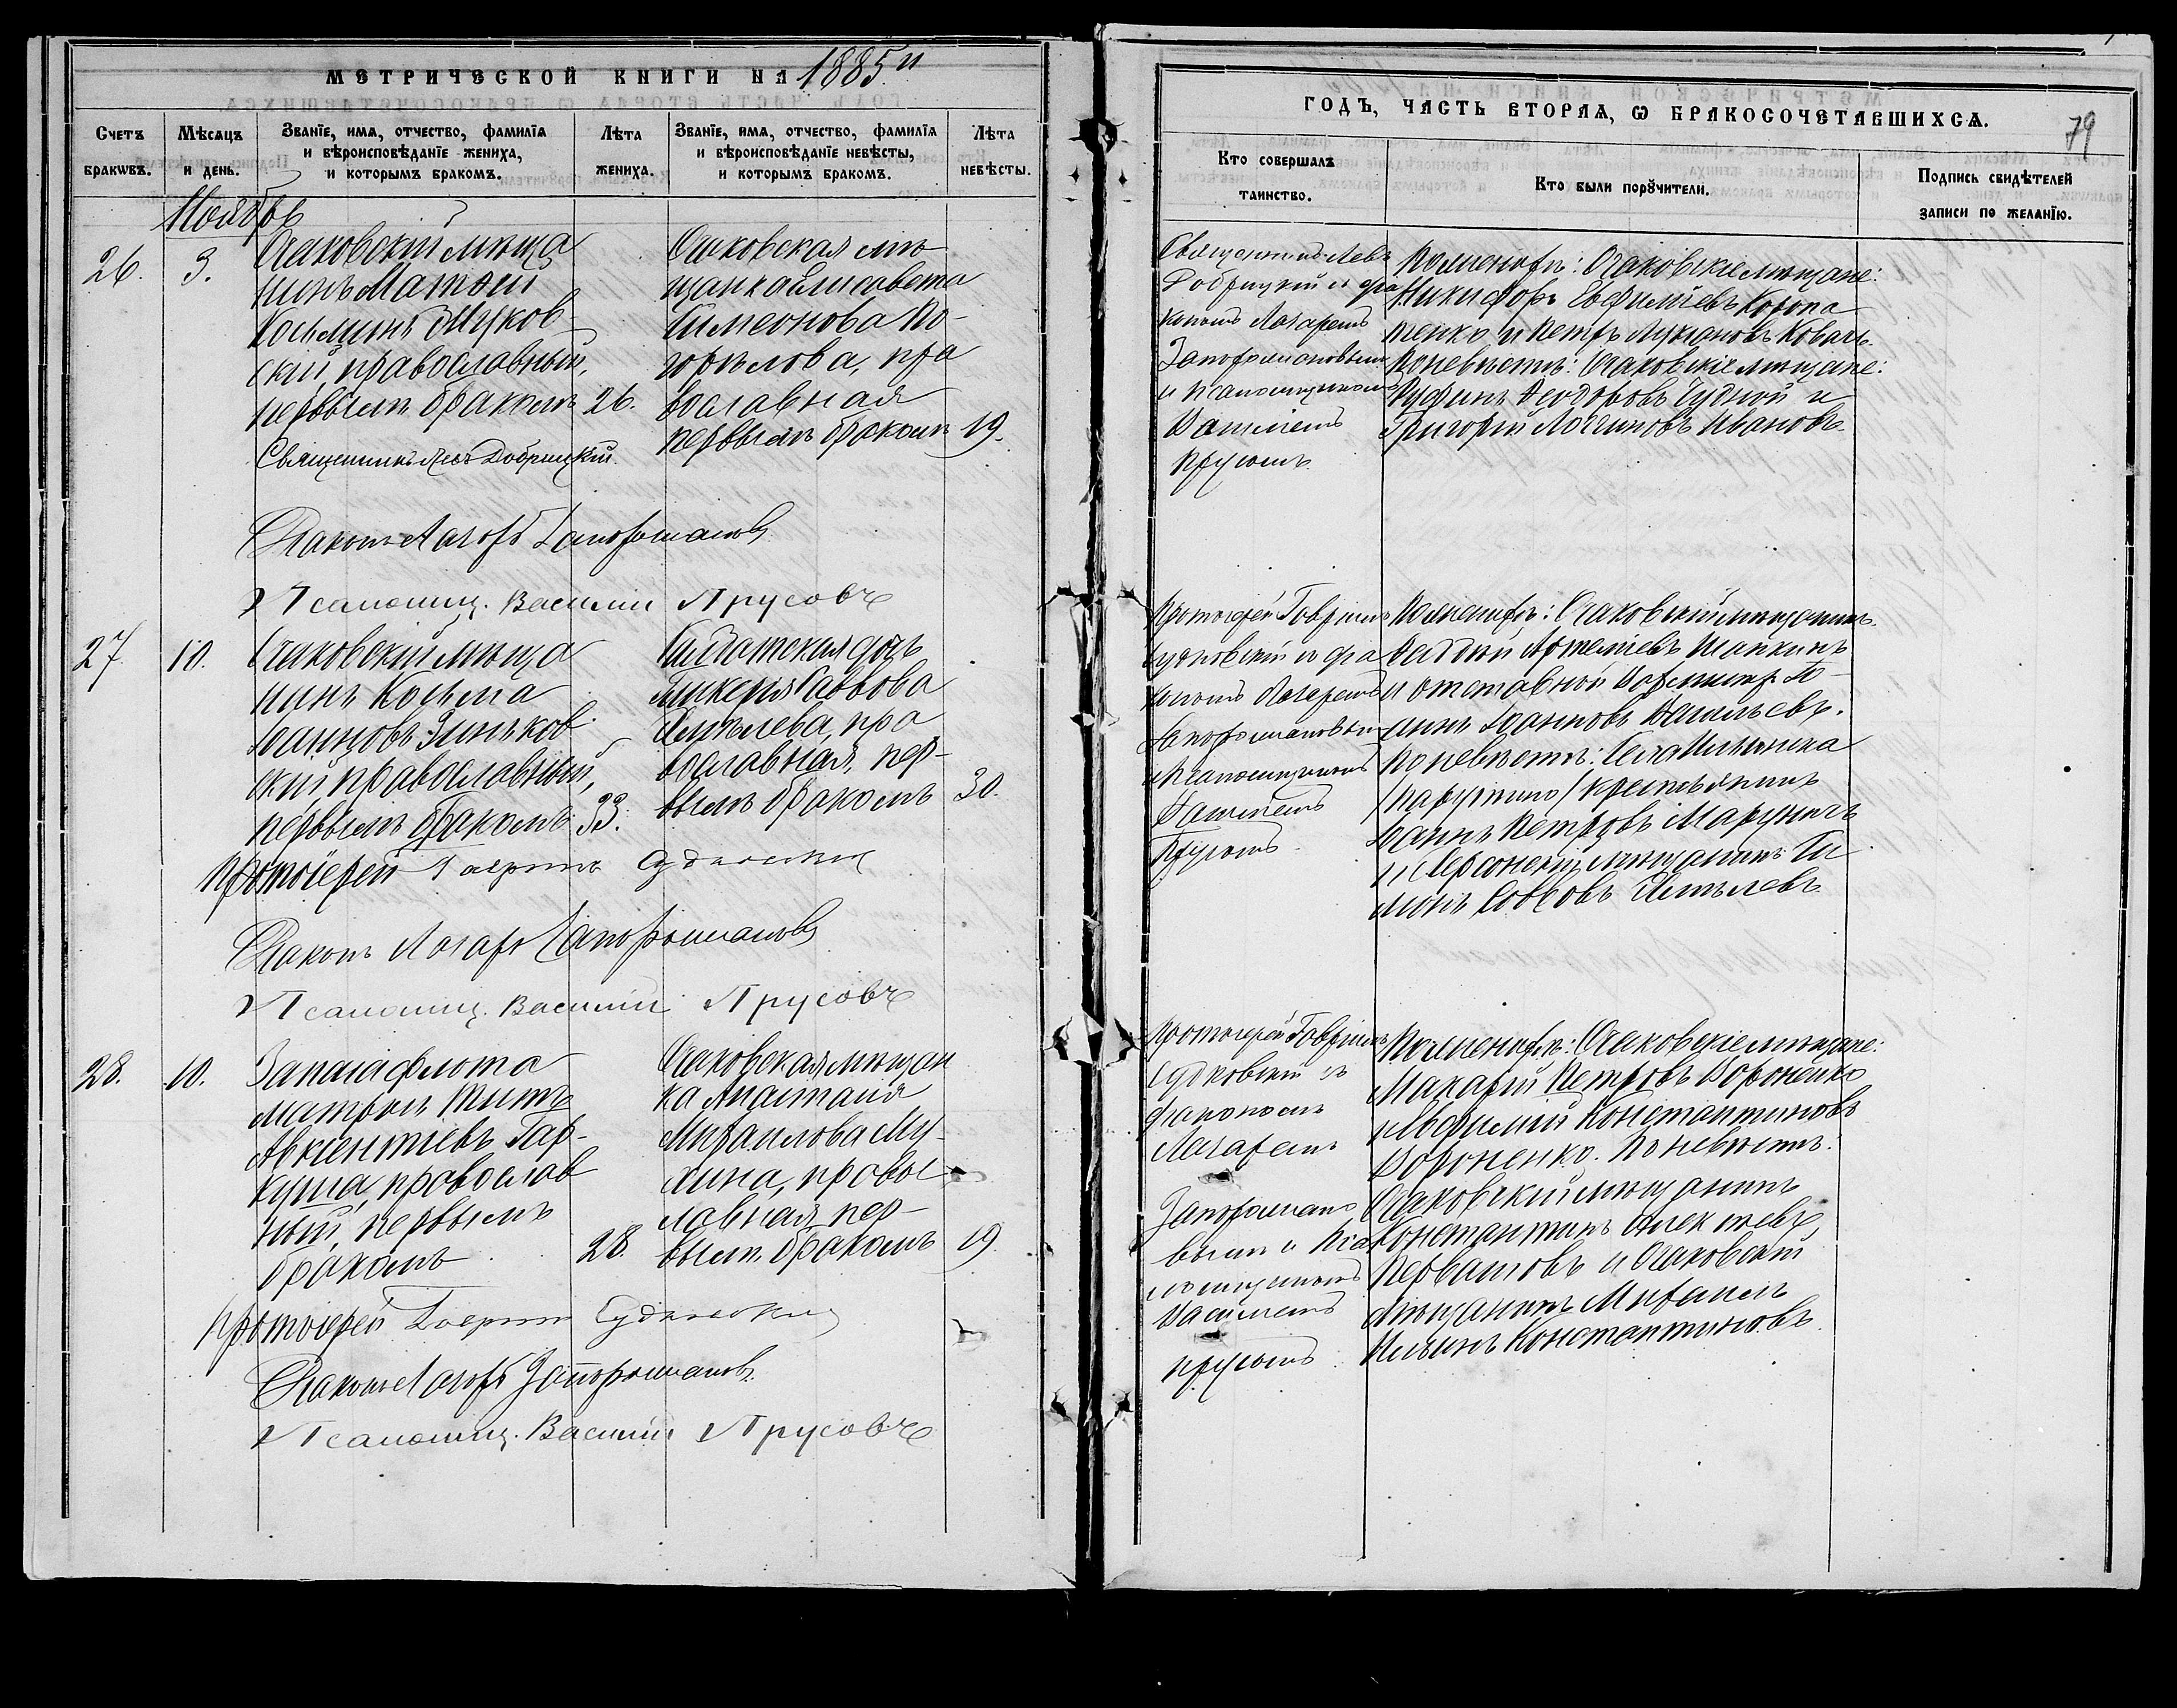 МЕТРИЧЕСКОЙ КНИГИ НА 1885й
Счетъ браковъ.
Мѣсяцъ и день.
Званїе, имя, отчество, фамилїя и вѣроисповѣданїе жениха, и которымъ бракомъ.
Лѣта жениха.
Званїе, имя, отчество, фамилїя и вѣроисповѣданїе невѣсты, и которымъ бракомъ.
Лѣта невѣсты.
Ноябрь
26. 3.
Очаковскій мѣща
нинъ Матѳей
Косьминъ Жуков
скій, православный,
первымъ бракомъ 26.
Очаковская мѣ-
щанка Елисавета
Симеонова По-
горѣлова, пра
вославная
первымъ бракомъ 19.
Священникъ Левъ Добрицкій.
Діаконъ Лазарь Запорошановъ
Псаломщ. Василий Прусовъ
27. 10.
Очаковскій мѣща
нинъ Косьма
Іоанновъ Зиньков
скій православный,
первымъ бракомъ 33.
Солдатская дочь
Гликерія Саввова
Емелева, пра
вославная, пер-
вымъ бракомъ 30.
Протоіерей Гавриилъ Судковскій
Діаконъ Лазарь Запорошановъ
Псаломщ. Василий Прусовъ
28. 10.
Запаса флота
матросъ Титъ
Авксентіевъ Гар-
куша, православ
ный, первымъ
бракомъ 28.
Очаковская мѣщан
ка Анастасія
Михаилова Му-
хина, правос
лавная, пер-
вымъ бракомъ 19.
Протоіерей Гавриилъ Судковскій
Діаконъ Лазарь Запорошановъ.
Псаломщ. Василий Прусовъ
ГОДЪ, ЧАСТЬ ВТОРАЯ, Ѡ БРАКОСОЧЕТАВШИХСЯ.
79
Кто совершалъ таинство.
Кто были порȣчители.
Подпись свидѣтелей записи по желанїю.
Священникъ Левъ
Добрицкій и діа
кономъ Лазаремъ
Запорошановымъ
и псаломщикомъ
Василіемъ
Прусовъ
По женихѣ: Очаковскіе мѣщане:
Никифоръ Евфиміевъ Коропа
тенко и Петръ Лукіановъ Коваль.
По невѣстѣ: Очаковскіе мѣщане:
Руфинъ Ѳеодоровъ Чудной и
Григорій Логгиновъ Ивановъ.
Протоіерей Гавриилъ
Судковскій и діа
кономъ Лазаремъ
Запорошановымъ
и псаломщикомъ
Василіемъ
Прусовъ
По женихѣ: Очаковскій мѣщанинъ
Ѳаддей Артеміевъ Шапкинъ
и отставной Іо-
аннъ Іоанновъ Васильевъ.
По невѣстѣ: Села Ильинка
/Парутино/ крестьянинъ
Іоаннъ Петровъ Маруничъ
и Херсонскій мѣщанинъ Ти
монъ Саввовъ Емелевъ
Протоіерей Гавриилъ
Судковскій съ
діакономъ
Лазаремъ
Запорошано
вымъ и Пса
ломщикомъ
Василіемъ
Прусовъ
По женихѣ: Очаковскіе мѣщане:
Макарій Петровъ Вороненко
и Евфимій Константиновъ
Вороненко. По невѣстѣ:
Очаковскій мѣщанинъ
Константинъ Алексѣевъ
Первашовъ и Очаковскій
мѣщанинъ Михаилъ
Ильинъ Константиновъ.